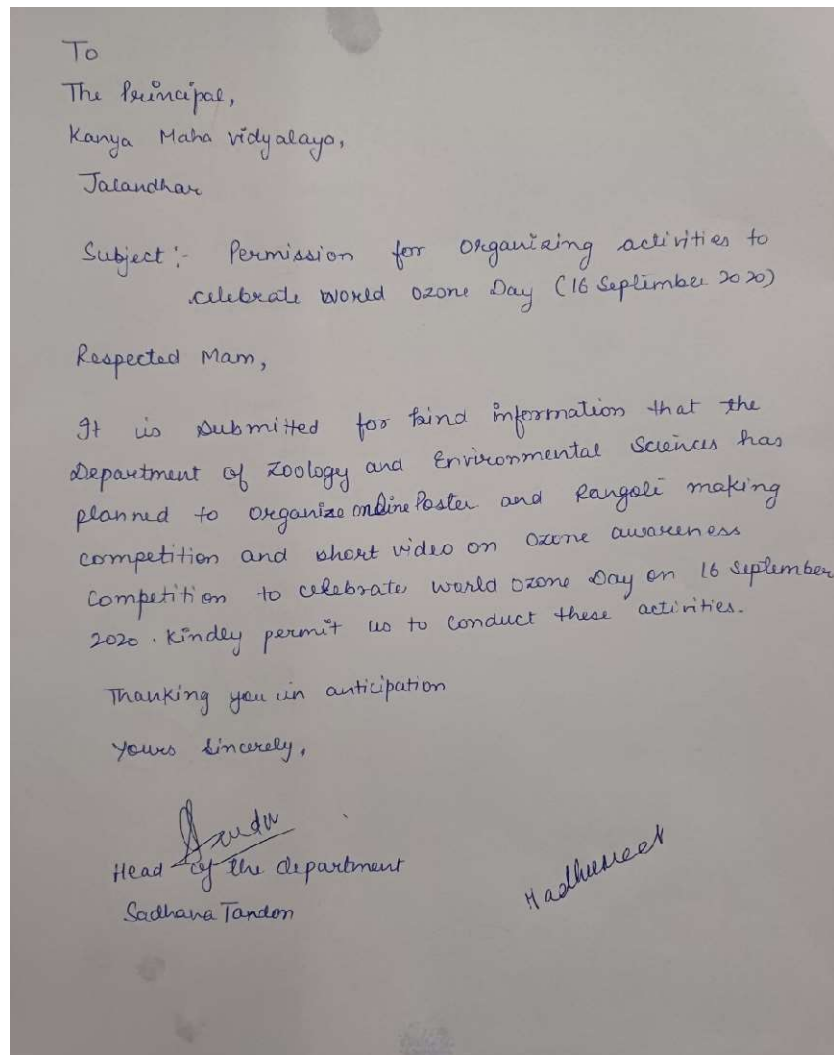 To
The Principal,
Kanya Maha vidyalaya,
Jalandhar
Subject :- Permission for organizing activities to
celebrate world ozone Day (16 September 2020)
Respected Mam,
It is submitted for kind information that the
Department of Zoology and Environmental Sciences has
planned to organize online Poster and Rangoli making
competition and short video on ozone awareness
competition to celebrate world ozone Day on 16 September
2020. Kindly permit us to conduct these activities.
Thanking you in anticipation
Yours sincerely,
Head of the department
Sadhana Tandon
Madhuneet